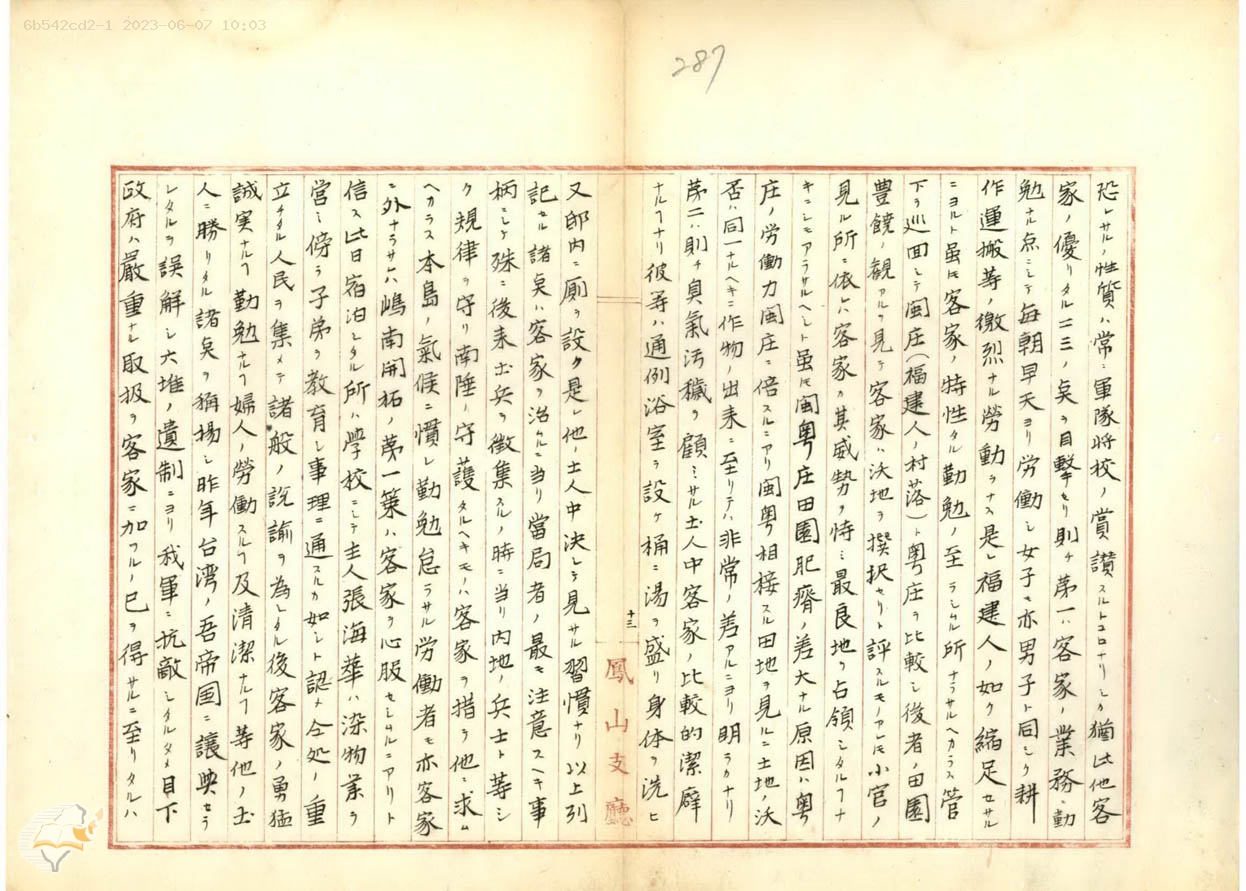 6b542cd2-1 2023-06-07 10:03
287
恐レサルノ性質ハ常ニ軍隊将校ノ賞讃スルトコロナリシカ猶此他客
家ノ優リタル二三ノ点ヲ目撃セリ則チ第一ハ客家ノ業務ニ勤
勉ナル点ニシテ毎朝早天ヨリ労働シ女子モ亦男子ト同シク耕
作運搬等ノ激烈ナル労動ヲナス是レ福建人ノ如ク縮足セサル
ニヨルト虽モ客家ノ特性タル勤勉ノ至ラシムル所ナラサルヘカラス管
下ヲ巡回シテ閩庄(福建人ノ村落)ト粤庄ヲ比較シ後者ノ田園
豊饒ノ観アルヲ見テ客家ハ沃地ヲ撰択セリト評スルモノアレモ小官ノ
見ル所ニ依レハ客家カ其威勢ヲ恃ミ最良地ヲ占領シタルヿナ
キニシモアラサルヘシト虽モ閩粤庄田園肥瘠ノ差大ナル原因ハ粤
庄ノ労働力閩庄ニ倍スルニアリ閩粤相接スル田地ヲ見ルニ土地ノ沃
否ハ同一ナルヘキニ作物ノ出来ニ至リテハ非常ノ差アルニヨリ明ラカナリ
第二ハ則チ臭氣汚穢ヲ顧ミサル土人中客家ノ比較的潔癖
ナルヿナリ彼等ハ通例浴室ヲ設ケ桶ニ湯ヲ盛リ身体ヲ洗ヒ
十三
鳳山支廳
又邸内ニ厠ヲ設ク是レ他ノ土人中決シテ見サル習慣ナリ以上列
記セル諸点ハ客家ヲ治ムルニ当リ當局者ノ最モ注意スヘキ事
柄ニシテ殊ニ後来土兵ヲ徴集スルノ時ニ当リ内地ノ兵士ト等シ
ク規律ヲ守リ南陲ノ守護タルヘキモノハ客家ヲ措テ他ニ求ム
ヘカラス本島ノ氣候ニ慣レ勤勉怠ラサル労働者モ亦客家
ニ外ナラサレハ嶋南開拓ノ第一策ハ客家ヲ心服セシムルニアリト
信ス此日宿泊シタル所ハ学校ニシテ主人張海華ハ染物業ヲ
営ミ傍ラ子弟ヲ教育シ事理ニ通スルカ如シト認メ今処ノ重
立チタル人民ヲ集メテ諸般ノ説諭ヲ為シタル後客家ノ勇猛
誠実ナルヿ勤勉ナルヿ婦人ノ労働スルヿ及清潔ナルヿ等他ノ土
人ニ勝リタル諸点ヲ称揚シ昨年台湾ノ吾帝国ニ譲与セラ
レタルヲ誤解シ六堆ノ遺制ニヨリ我軍ニ抗敵シタルタメ目下
政府ハ嚴重ナル取扱ヲ客家ニ加フルノ已ヲ得サルニ至リタルハ